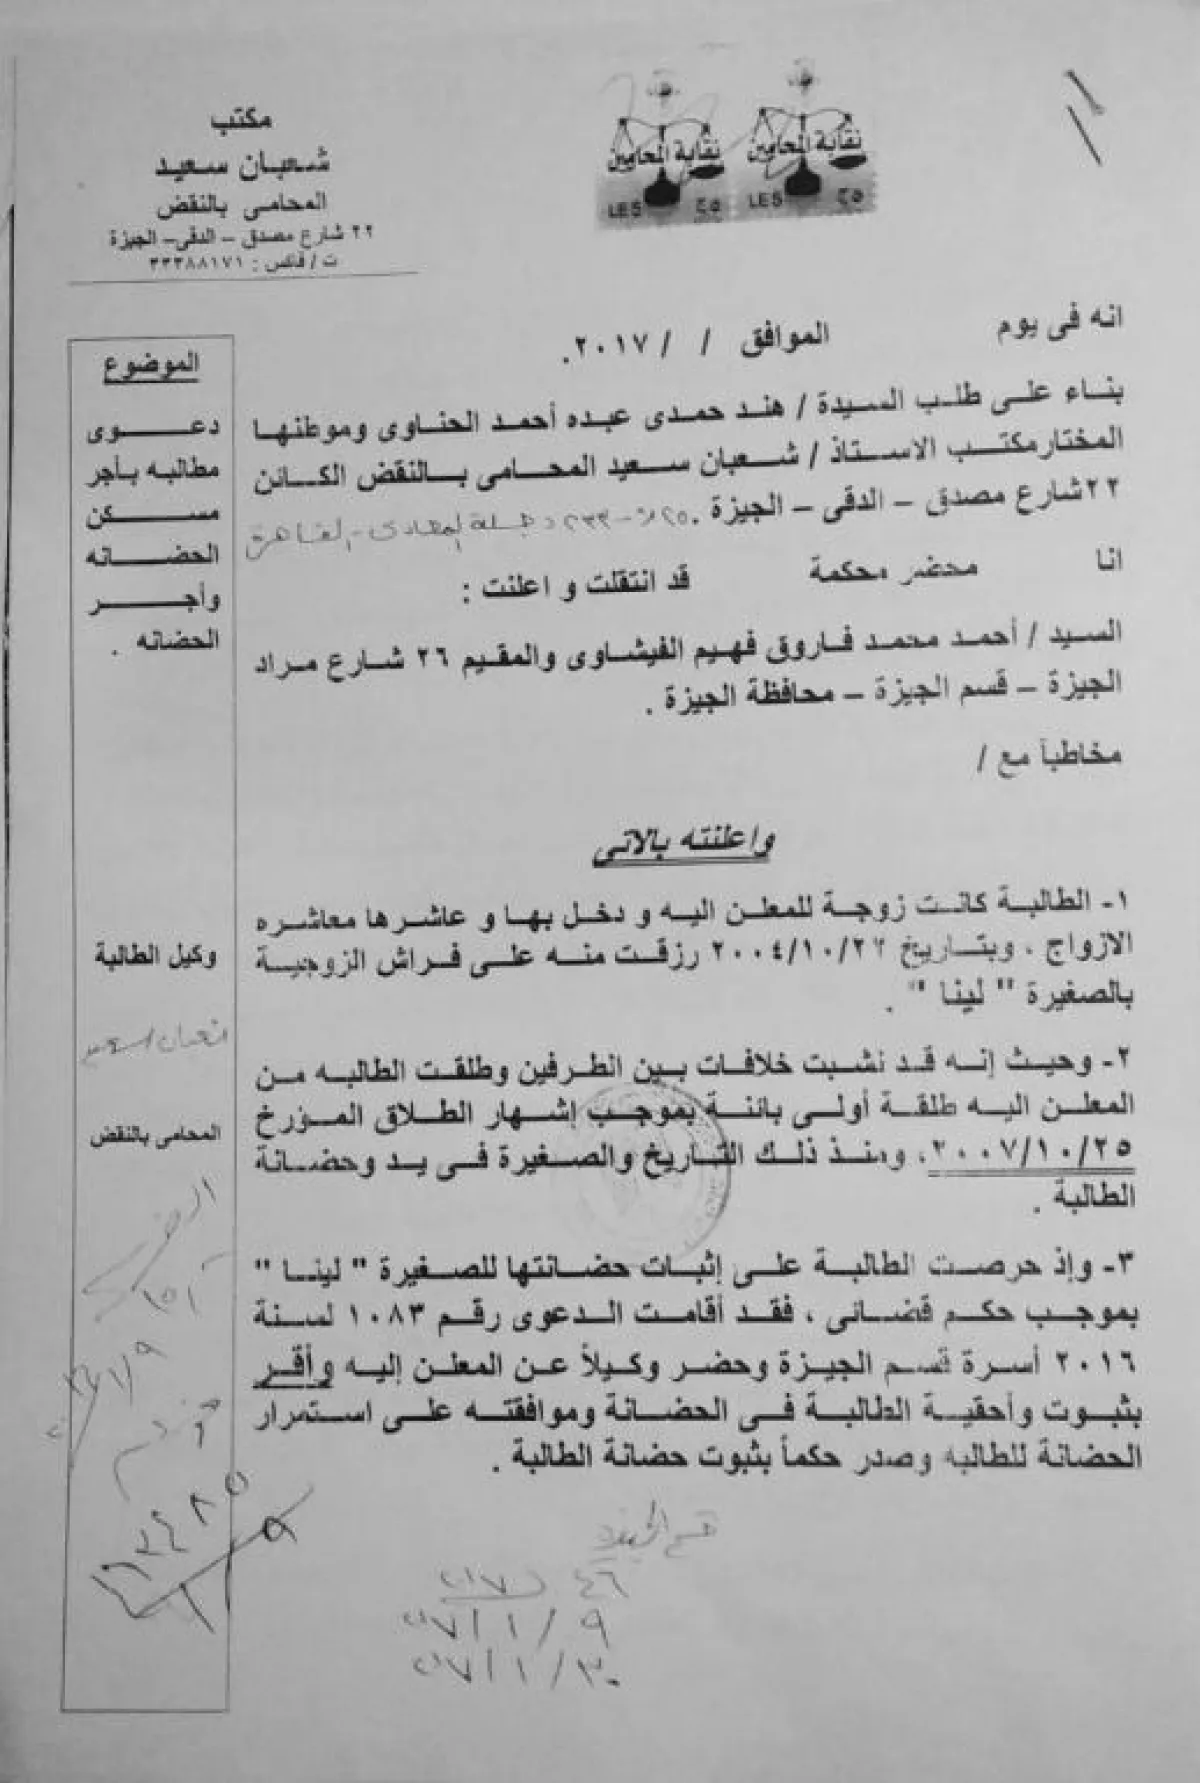 مكتب
شعبان سعيد
المحامى بالنقض
٢٢ شارع مصدق – الدقى– الجيزة
ت/ فاكس : ٣٣٣٨٨١٧١
نقابة المحامين
LE5 ٢٥
نقابة المحامين
LE5 ٢٥
انه فى يوم الموافق / / ٢٠١٧.
بناء على طلب السيدة / هند حمدى عبده أحمد الحناوى وموطنها
المختار مكتب الاستاذ / شعبان سعيد المحامى بالنقض الكائن
٢٢شارع مصدق – الدقى – الجيزة . دجلة المعادى - القاهرة
انا محضر محكمة قد انتقلت و اعلنت :
السيد / أحمد محمد فاروق فهيم الفيشاوى والمقيم ٢٦ شارع مراد
الجيزة – قسم الجيزة – محافظة الجيزة .
مخاطباً مع /
واعلنته بالاتى
١- الطالبة كانت زوجة للمعلن اليه و دخل بها و عاشرها معاشره
الازواج ، وبتاريخ ٢٠٠٤/١٠/٢٦ رزقت منه على فراش الزوجية
بالصغيرة " لينا " .
٢- وحيث إنه قد نشبت خلافات بين الطرفين وطلقت الطالبه من
المعلن اليه طلقة أولى بائنة بموجب إشهار الطلاق المؤرخ
٢٠٠٧/١٠/٢٥، ومنذ ذلك التاريخ والصغيرة فى يد وحضانة
الطالبة .
٣- وإذ حرصت الطالبة على إثبات حضانتها للصغيرة " لينا "
بموجب حكم قضائى ، فقد أقامت الدعوى رقم ١٠٨٣ لسنة
٢٠١٦ أسرة قسم الجيزة وحضر وكيلاً عن المعلن إليه وأقر
بثبوت وأحقية الطالبة فى الحضانة وموافقته على استمرار
الحضانة للطالبه وصدر حكماً بثبوت حضانة الطالبة .
٢٠١٧ ٤٦
٢٠١٧/١/٩
٢٠١٧/١/٣٠
الموضوع
دعوى
مطالبه بأجر
مسكن
الحضانه
وأجر
الحضانه .
وكيل الطالبة
شعبان سعيد
المحامى بالنقض